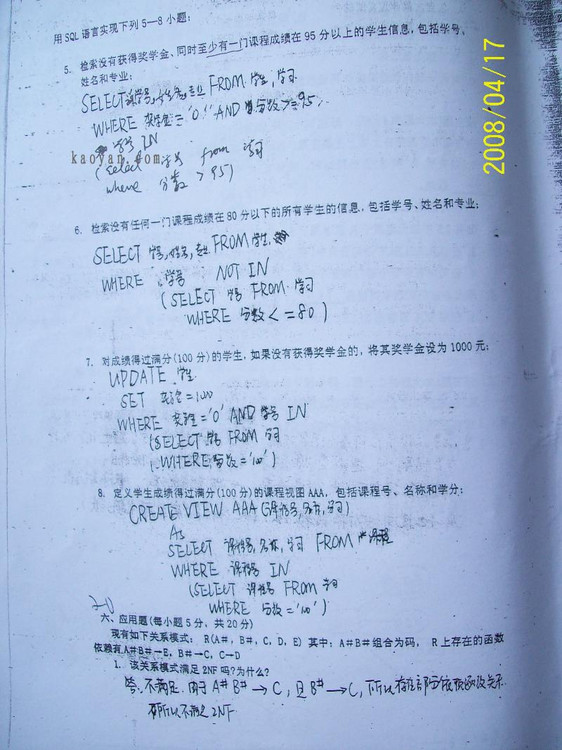 用SQL语言实现下列5—8小题:
5. 检索没有获得奖学金、同时至少有一门课程成绩在95分以上的学生信息,包括学号、
姓名和专业;
SELECT 学号,姓名,专业 FROM 学生,学习
WHERE 奖学金='0' AND 分数>=95
学号 IN
(select 学号 from 学习
where 分数 > 95)
kaoyan.com
2008/04/17
6. 检索没有任何一门课程成绩在80分以下的所有学生的信息,包括学号、姓名和专业;
SELECT 学号,姓名,专业 FROM 学生
WHERE 学号 NOT IN
(SELECT 学号 FROM 学习
WHERE 分数<=80)
7. 对成绩得过满分(100分)的学生,如果没有获得奖学金的,将其奖学金设为1000元;
UPDATE 学生
SET 奖学金=1000
WHERE 奖学金='0' AND 学号 IN
(SELECT 学号 FROM 学习
WHERE 分数='100')
8. 定义学生成绩得过满分(100分)的课程视图AAA,包括课程号、名称和学分;
CREATE VIEW AAA(课程号,名称,学分)
As
SELECT 课程号,名称,学分 FROM 课程
WHERE 课程号 IN
(SELECT 课程号 FROM 学习
WHERE 分数='100')
20
六、应用题(每小题5分,共20分)
现有如下关系模式: R(A#, B#, C, D, E) 其中: A#B#组合为码, R上存在的函数
依赖有A#B#→E, B#→C, C→D
1. 该关系模式满足2NF吗?为什么?
答:不满足.由于A#B#→C,且B#→C,所以存在部分依赖函数关系.
所以不满足2NF